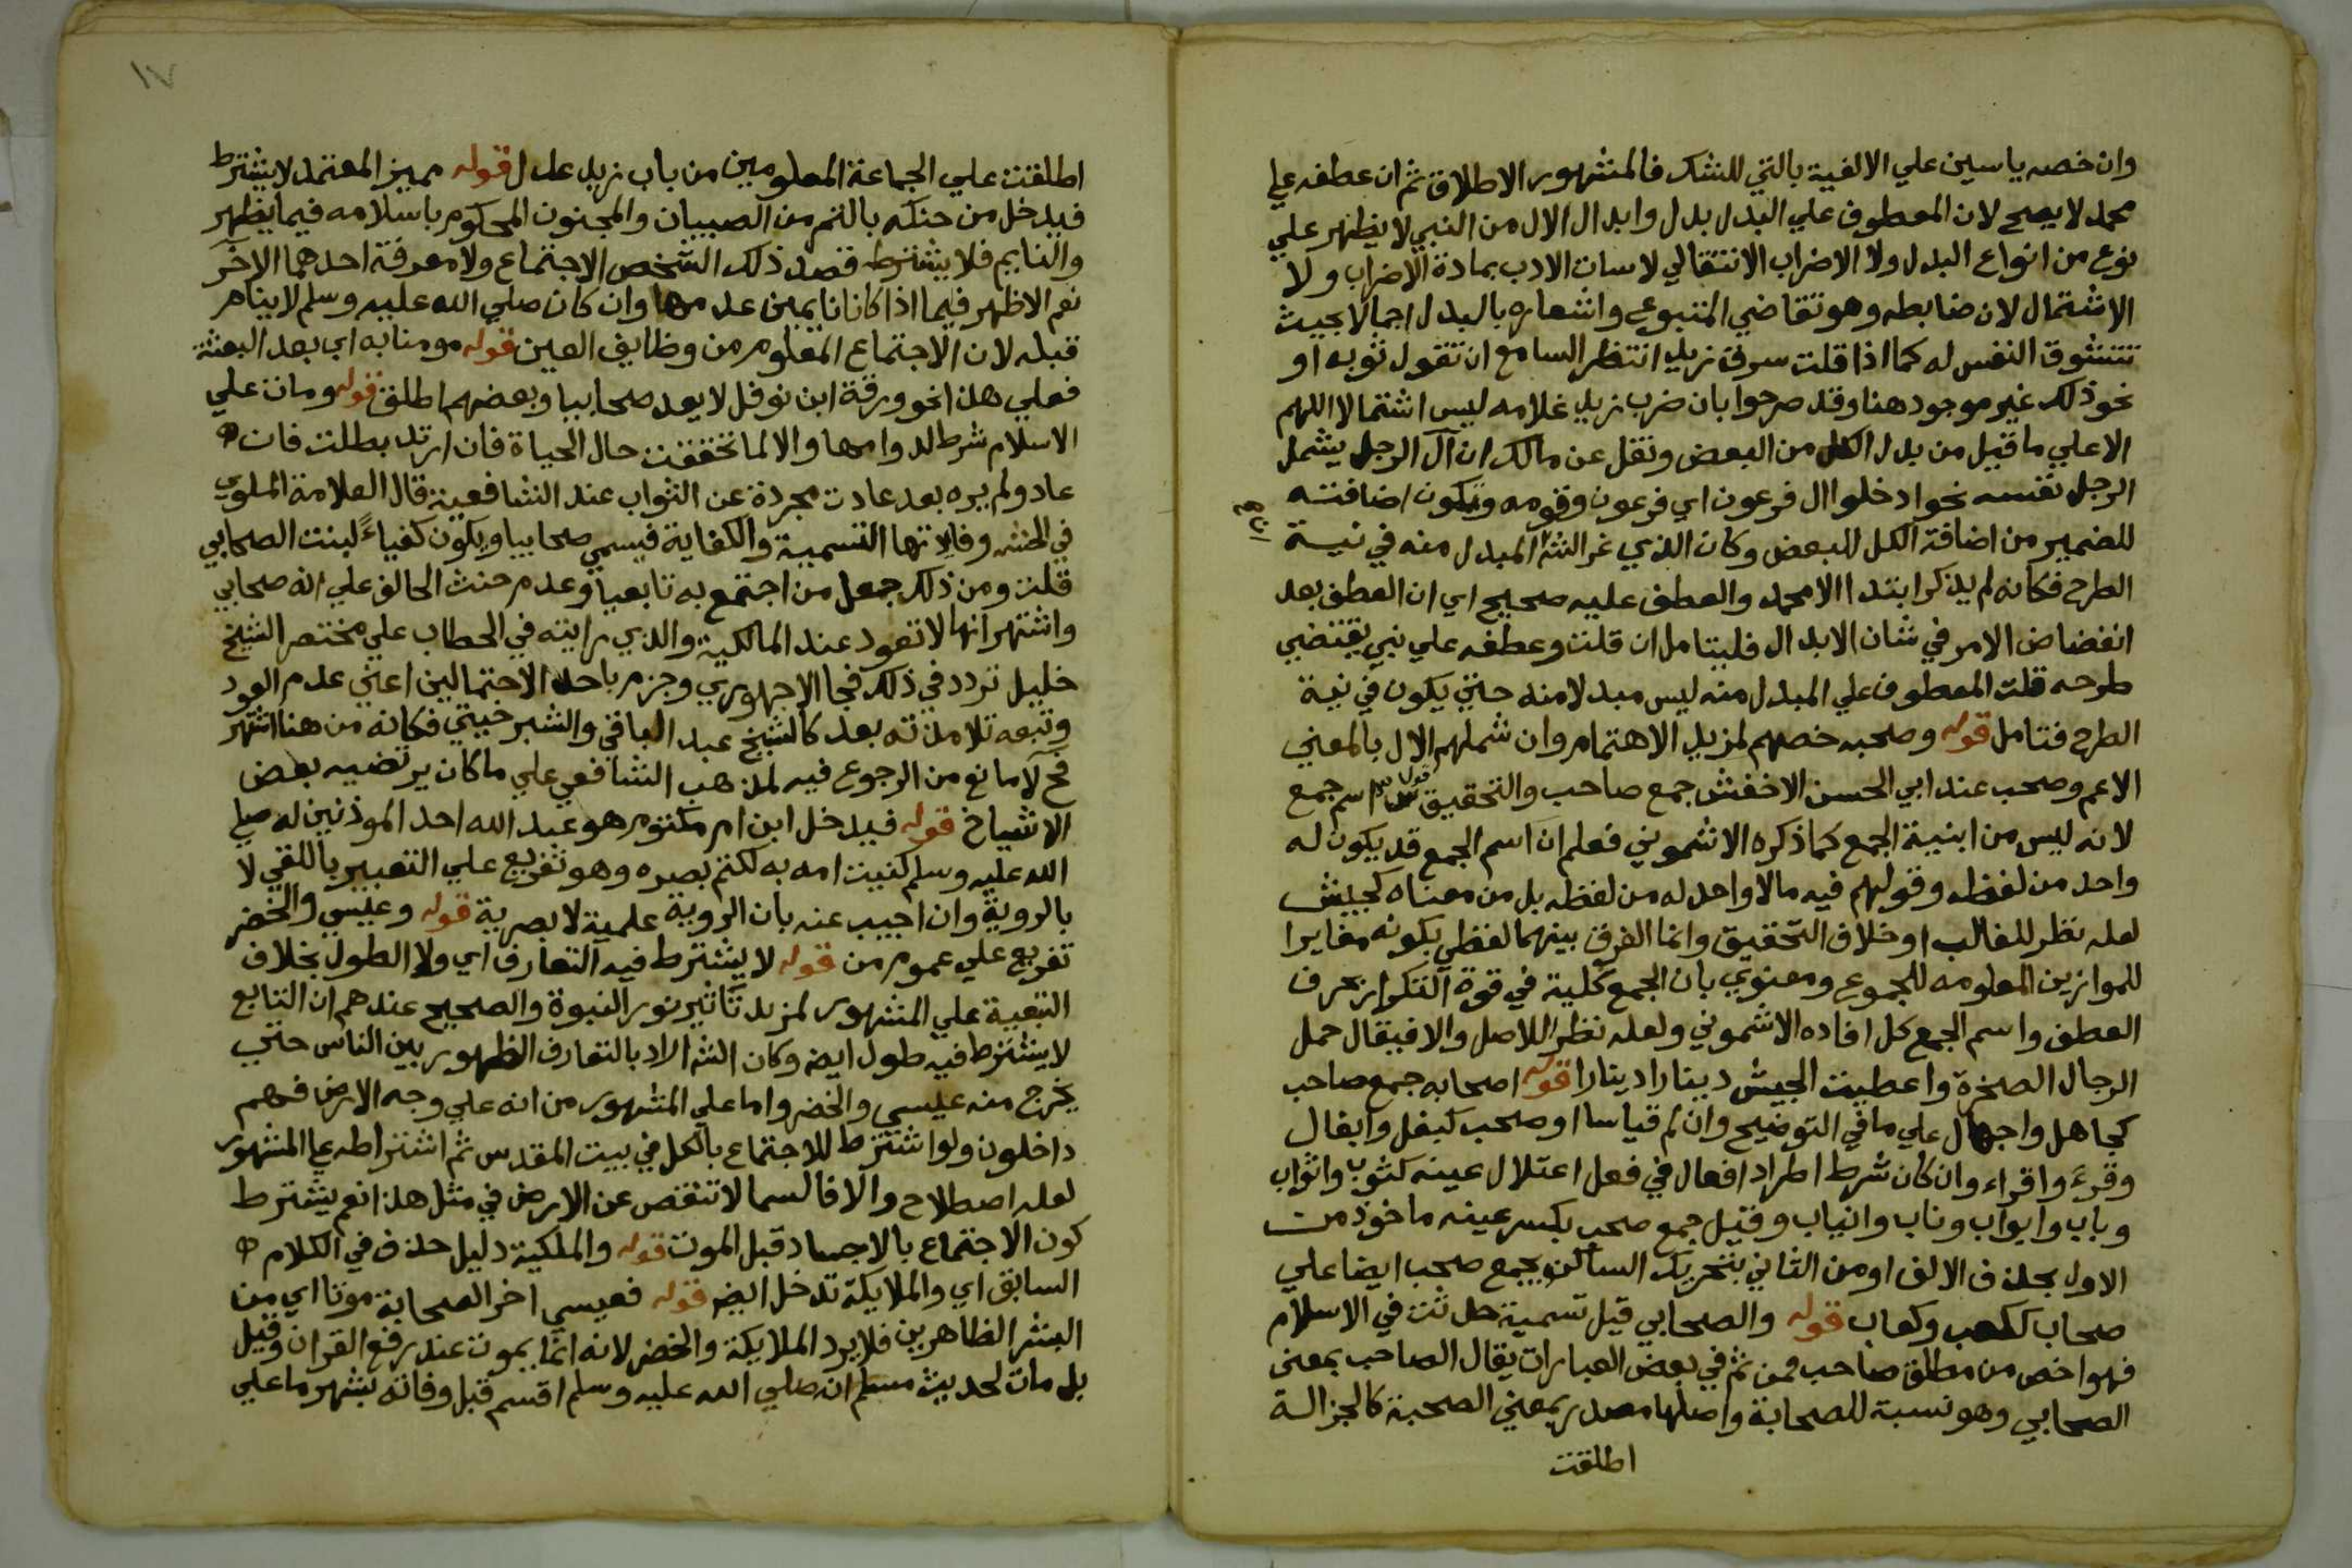 وان خصه ياسين علي الالفية بالتي للشك فالمشهور الاطلاق ثم ان عطفه علي
محمد لا يصح لان المعطوف علي البدل بدل وابدال الال من النبي لا يظهر علي
نوع من انواع البدل ولا الاضراب الانتقالي لاسات الادب بمادة الاضراب ولا
الاشتمال لان ضابطه وهو تقاضي المتبوع واشعاره بالبدل اجمالا بحيث
تتشوق النفس له كما اذا قلت سرق زيد انتظر السامع ان تقول ثوبه او
نحو ذلك غير موجود هنا وقد صرحوا بان ضرب زيد غلامه ليس اشتمالا اللهم
الا علي ما قيل من بدل الكل من البعض ونقل عن مالك ان آل الرجل يشمل
الرجل نفسه نحو ادخلوا ال فرعون اي فرعون وقومه وتكون اضافته
للضمير من اضافة الكل للبعض وكان الذي غر الش المبدل منه في نية
الطرح فكانه لم يذكر ابتدا الا محمد والعطف عليه صحيح اي ان العطف بعد
انفضاض الامر في شان الابدال فليتامل ان قلت وعطفه علي نبي يقتضي
طرحه قلت المعطوف علي المبدل منه ليس مبدلا منه حتي يكون في نية
الطرح فتامل قوله وصحبه خصهم لمزيد الاهتمام وان شملهم الال بالمعني
الاعم وصحب عند ابي الحسن الاخفش جمع صاحب والتحقيق قول س اسم جمع
لانه ليس من ابنية الجمع كما ذكره الاشموني فعلم ان اسم الجمع قد يكون له
واحد من لفظه وقولهم فيه مالا واحد له من لفظه بل من معناه كجيش
لعله نظر للغالب او خلاف التحقيق وانما الفرق بينهما لفظي بكونه مغايرا
للموازين المعلومه للجموع ومعنوي بان الجمع كلية في قوة التكرار بحرف
العطف واسم الجمع كل افاده الاشموني ولعله نظر للاصل والا فيقال حمل
الرجال الصخرة واعطيت الجيش دينارا دينارا قوله اصحابه جمع صاحب
كجاهل واجهال علي ما في التوضيح وان لم قياسا او صحب كبغل وابغال
وقرء واقراء وان كان شرط اطراد افعال في فعل اعتلال عينه كثوب واثواب
وباب وابواب وناب وانياب وقيل جمع صحب بكسر عينه ماخوذ من
الاول بحذف الالف او من الثاني بتحريك الساكن ويجمع صحب ايضا علي
صحاب ككعب وكعاب قوله والصحابي قيل تسمية حدثت في الاسلام
فهو اخص من مطلق صاحب فمن ثم في بعض العبارات يقال الصاحب بمعنى
الصحابي وهو نسبة للصحابة واصلها مصدر بمعني الصحبة كالجزالة
اطلقت
١٧
اطلقت علي الجماعة المعلومين من باب زيد عدل قوله مميز المعتمد لا يشترط
فيدخل من حنكه بالتمر من الصبيان والمجنون المحكوم باسلامه فيما يظهر
والنايم فلا يشترط قصد ذلك الشخص الاجتماع ولا معرفة احدهما الاخر
نعم الاظهر فيما اذا كانا نايمين عدمها وان كان صلي الله عليه وسلم لا يناهر
قبله لان الاجتماع المعلوم من وظايف العين قوله مومنا به اي بعد البعثة
فعلي هذا نحو ورقة ابن نوفل لا يعد صحابيا وبعضهم اطلق قوله ومات علي
الاسلام شرط لدوامها والا لما تحققت حال الحياة فان ارتد بطلت فان
عاد ولم يره بعد عادت مجردة عن الثواب عند الشافعية قال العلامة الملوي
في الحش وفايدتها التسمية والكفاية فيسمي صحابيا ويكون كفياء لبنت الصحابي
قلت ومن ذلك جعل من اجتمع به تابعيا وعدم حنث الحالف علي انه صحابي
واشتهر انها لا تعود عند المالكية والذي رايته في الحطاب علي مختصر الشيخ
خليل تردد في ذلك فجا الاجهوري وجزم باحد الاحتمالين اعني عدم العود
وتبعه تلامذته بعد كالشيخ عبد الباقي والشبرخيتي فكانه من هنا اشتهر
فح لا مانع من الرجوع فيه لمذهب الشافعي علي ما كان يرتضيه بعض
الاشياخ قوله فيدخل ابن ام مكتوم هو عبد الله احد الموذنين له صلي
الله عليه وسلم كنيت امه به لكتم بصره وهو تفريع علي التعبير باللقي لا
بالروية وان اجيب عنه بان الروية علمية لا بصرية قوله وعيسي والخضر
تفريع علي عموم من قوله لا يشترط فيه التعارف اي ولا الطول بخلاف
التبعية علي المشهور لمزيد تاثير نور النبوة والصحيح عندهم ان التابع
لا يشترط فيه طول ايضه وكان الش اراد بالتعارف الظهور بين الناس حتي
يخرج منه عيسي والخضر واما علي المشهور من انه علي وجه الارض فهم
داخلون ولو اشترط للاجتماع بالكل في بيت المقدس ثم اشتراطه علي المشهور
لعله اصطلاح والا فالسما لا تنقص عن الارض في مثل هذا نعم يشترط
كون الاجتماع بالاجساد قبل الموت قوله والملكية دليل حذف في الكلام
السابق اي والملايكة تدخل ايضه قوله فعيسي اخر الصحابة موتا اي من
البشر الظاهرين فلا يرد الملايكة والخضر لانه انما يموت عند رفع القران وقيل
بل مات لحديث مسلم انه صلي الله عليه وسلم اقسم قبل وفاته بشهر ما علي